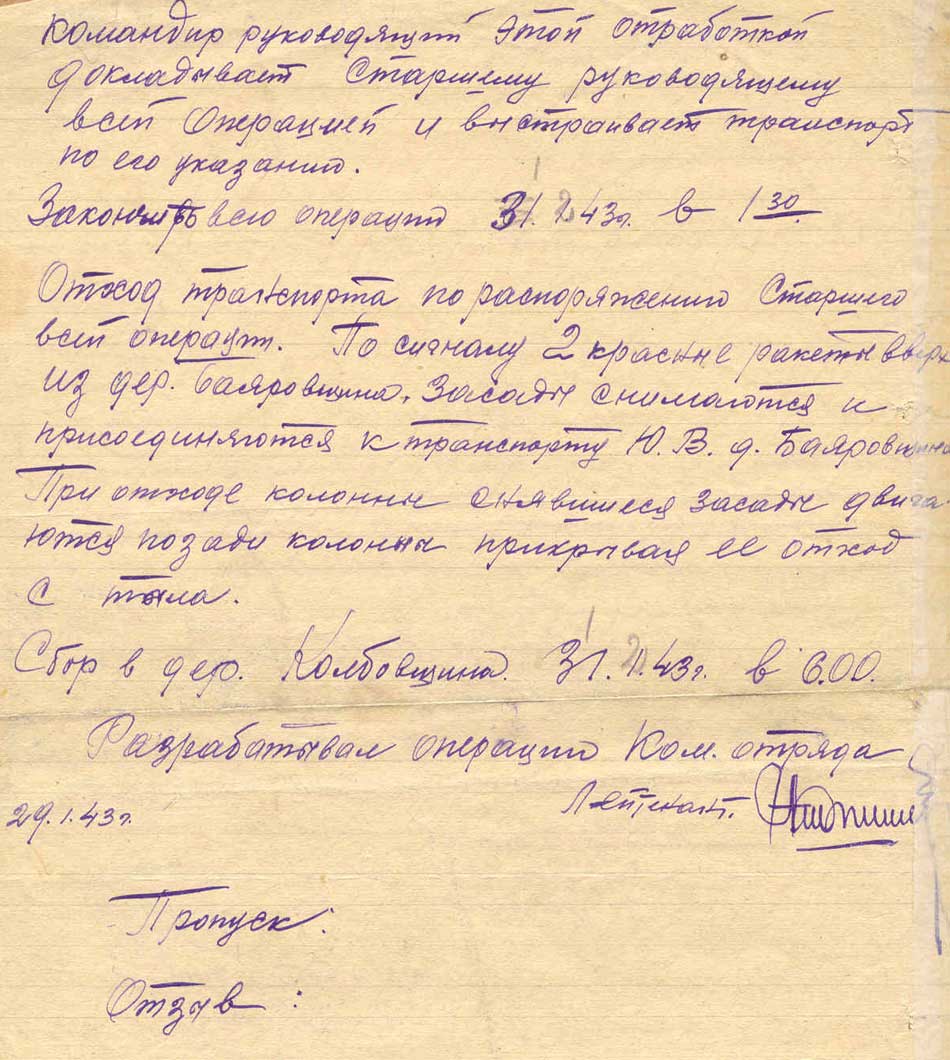 Командир руководящий этой отработкой
докладывает Старшему руководящему
всей операцией и выстраивает транспорт
по его указанию.
Закончить всю операцию 31. 1 43г. в 1 30
Отход транспорта по распоряжению Старшего
всей операции. По сигналу 2 красные ракеты вверх
из дер. Бояровщина. Засады снимаются и
присоединяются к транспорту Ю.В. д. Баяровщина
При отходе колонны снявшиеся засады двига
ются позади колонны прикрывая ее отход
с тыла.
Сбор в дер. Колбовщина. 31. 1. 43г. в 6.00.
Разрабатывал операцию Ком. отряда
Лейтенант.
29.1.43г.
Пропуск:
Отзыв :